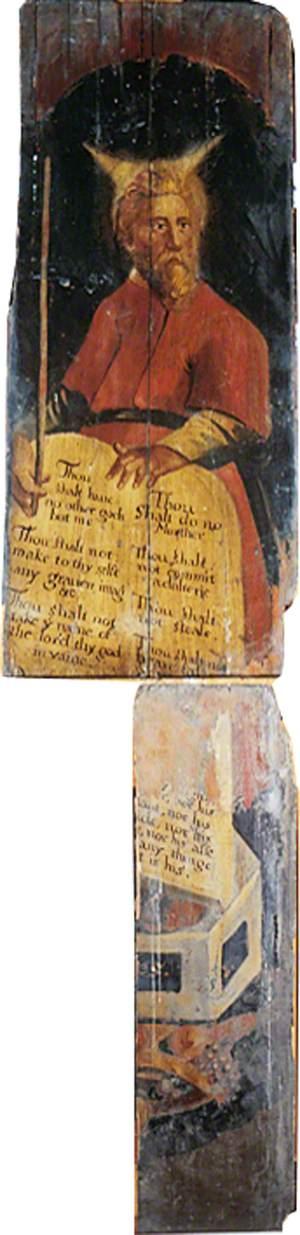 Thou
shalt have
no other gods
but me
Thou shalt not
make to thy selfe
any graven imag
&c
Thou shalt not
take ye name of
the lord thy god
in vaine
Thou
Shalt do no
Murther
Thou shalt
not commit
adulterie
Thou shalt
not steale.
Thou shalt not
his
nor his
nor his
nor his asse
any thinge
t is his.